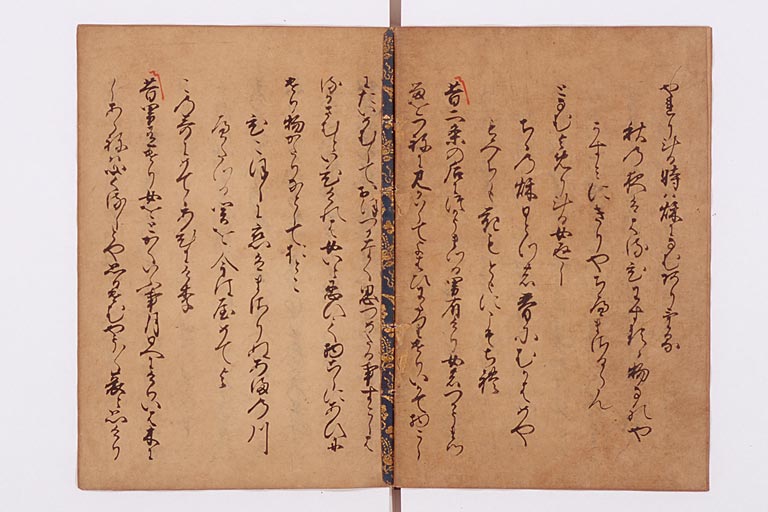 やれりける時は秋になむありける
秋の夜は春日わするゝ物なれや
かすみにきりやちへまさるらん
となむよめりける女返し
ちゝの秋ひとつの春にむかはめや
もみちも花もともにこそちれ
昔二条の后につかうまつる男有けり女のつかうまつ
るをつねに見かはしてよはひわたりけりいかて物こし
にたいめむしておほつかなく思つめたる事すこしは
るかさむといひけれは女いと忍ひて物こしにあひに
けり物かたりなとしておとこ
ひこほしに恋はまさりぬあまの川
へたつる関を今はやめてよ
この哥にめてゝあひにけり
昔男有けり女をとかくいふ事月日へにけりいは木に
しあらねは心くるしとや思けむやう〱哀と思けり